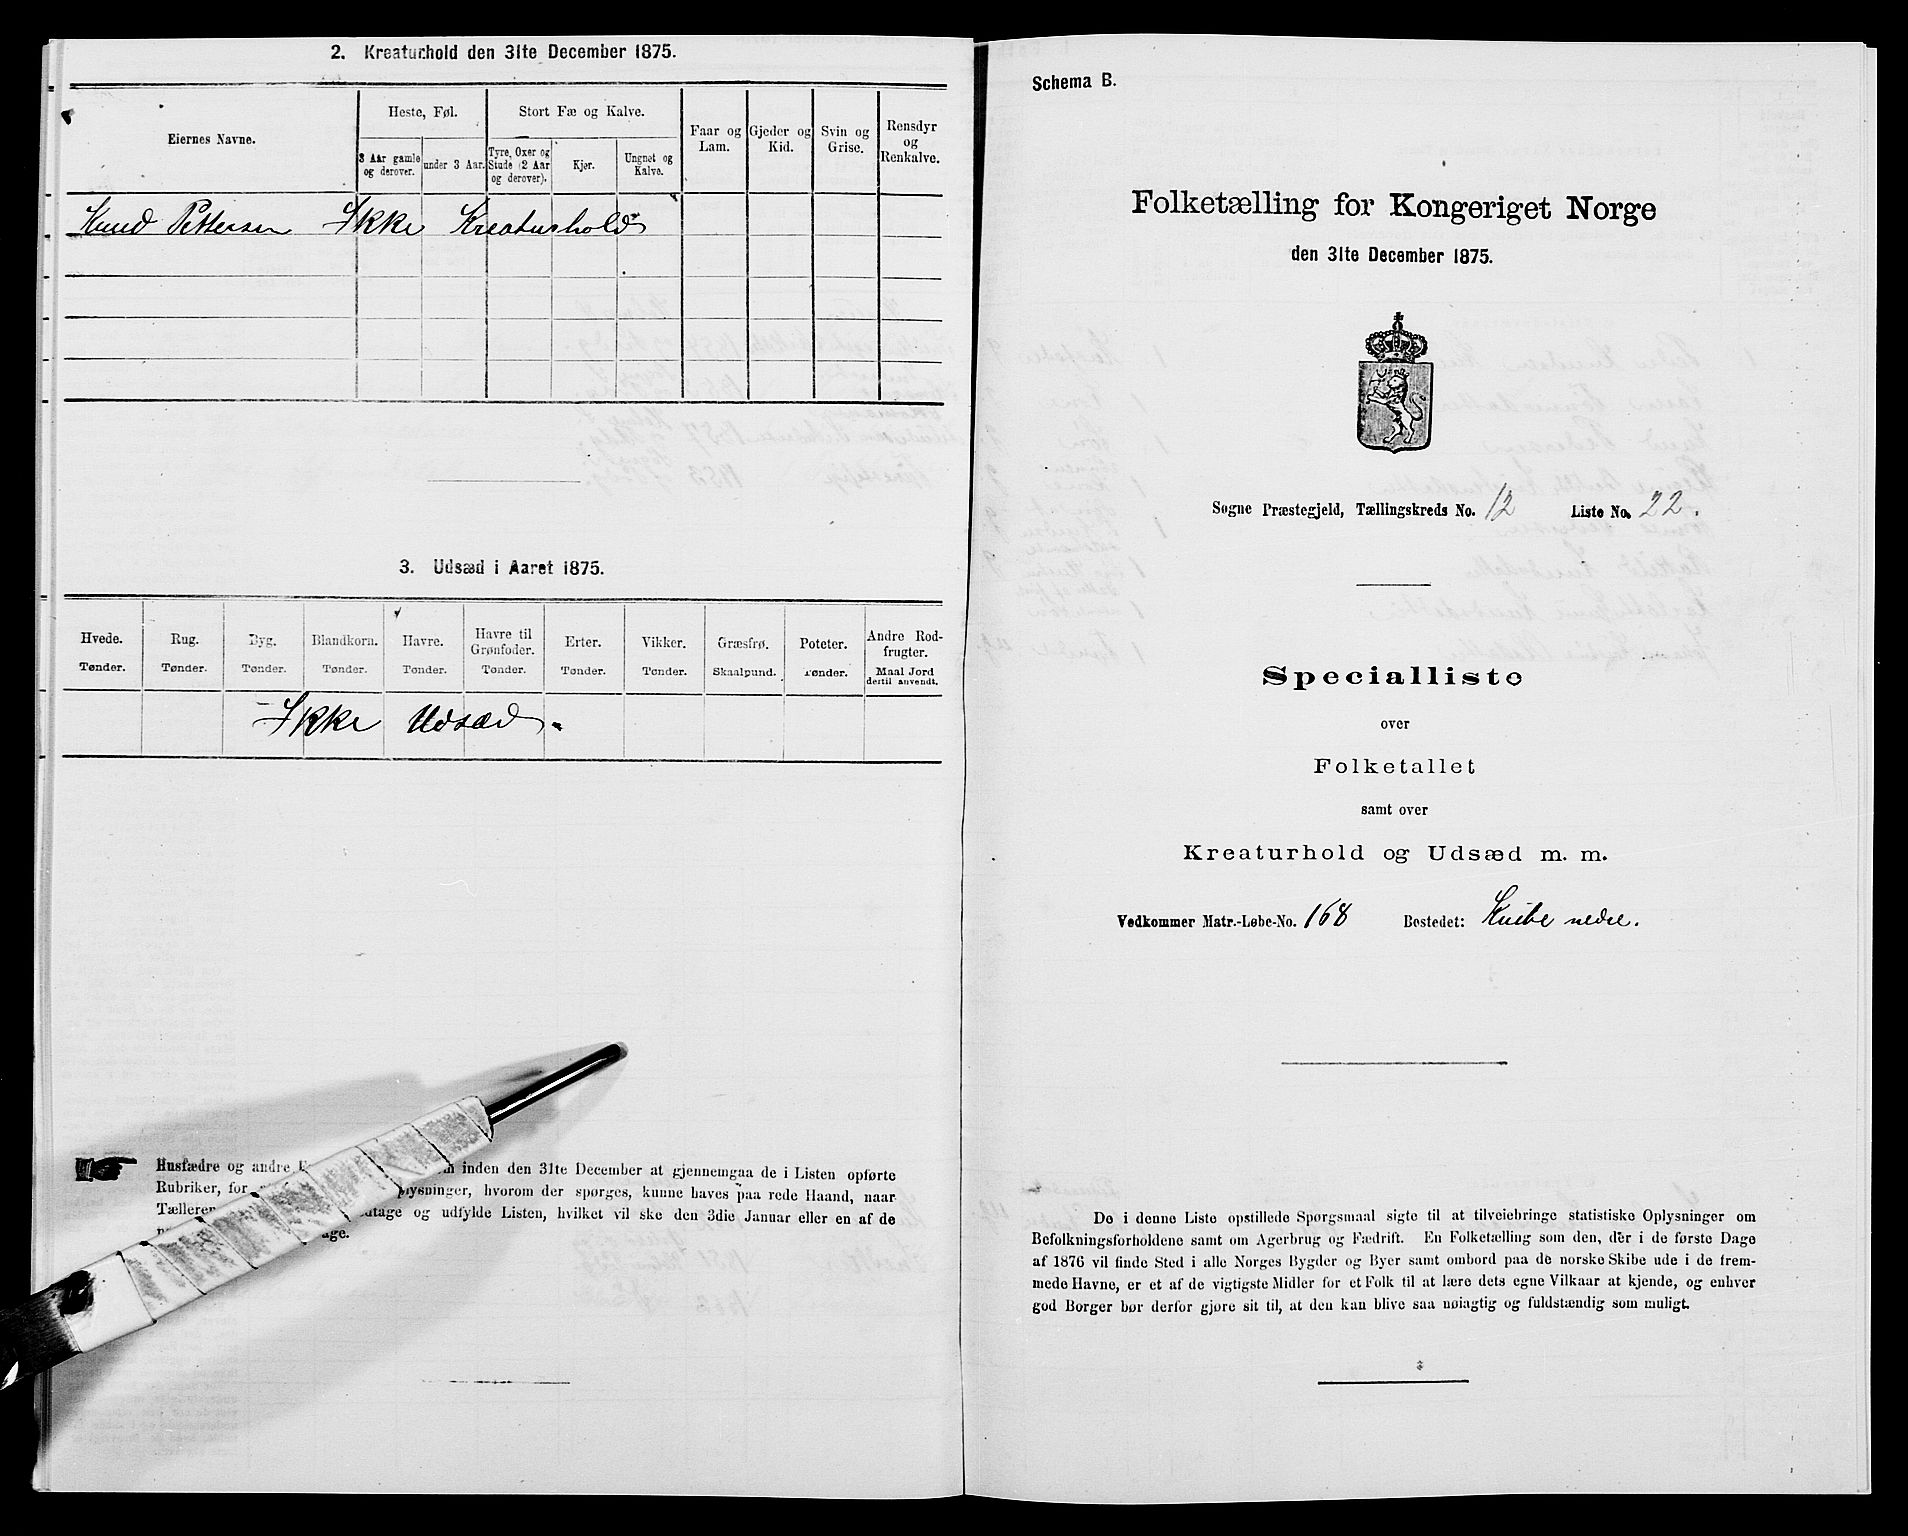 2. Kreaturhold den 31te December 1875.
Eiernes Navne.
Heste, Føl.
Stort Fæ og Kalve.
Faar og Lam.
Gjeder og Kid.
Svin og Grise.
Rensdyr og Renkalve.
3 Aar gamle og derover.
under 3 Aar.
Tyre, Oxer og Stude (2 Aar og derover).
Kjør.
Ungnet og Kalve.
Knud Pettersen Ikke Kreaturhold
3. Udsæd i Aaret 1875.
Hvede. Rug. Byg. Blandkorn. Havre. Havre til Grønfoder. Erter. Vikker. Græsfrø. Poteter. Andre Rodfrugter.
Tønder. Tønder. Tønder. Tønder. Tønder. Tønder. Tønder. Tønder. Skaalpund. Tønder. Maal Jord dertil anvendt.
Ikke Udsæd.
Husfædre og andre inden den 31te December at gjennemgaa de i Listen opførte
Rubriker, for plysninger, hvorom der spørges, kunne haves paa rede Haand, naar
Tælleren dtage og udfylde Listen, hvilket vil ske den 3die Januar eller en af de
age.
Schema B.
Folketælling for Kongeriget Norge
den 31te December 1875.
Søgne Præstegjeld, Tællingskreds No. 12 Liste No. 22.
Specialliste
over
Folketallet
samt over
Kreaturhold og Udsæd m. m.
Vedkommer Matr.-Løbe-No. 168 Bostedet: Kuibe nedre.
De i denne Liste opstillede Spørgsmaal sigte til at tilveiebringe statistiske Oplysninger om
Befolkningsforholdene samt om Agerbrug og Fædrift. En Folketælling som den, der i de første Dage
af 1876 vil finde Sted i alle Norges Bygder og Byer samt ombord paa de norske Skibe ude i de frem-
mede Havne, er et af de vigtigste Midler for et Folk til at lære dets egne Vilkaar at kjende, og enhver
god Borger bør derfor gjøre sit til, at den kan blive saa nøiagtig og fuldstændig som muligt.